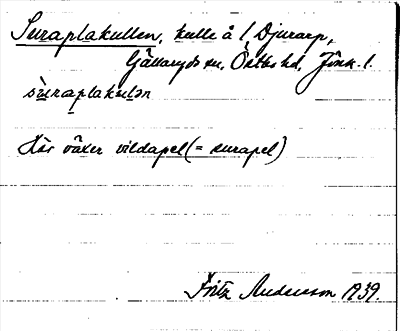 Suraplakullen, kulle å 1 Djurarp,
Gällaryds sn, Östbo hd, Jönk. l.
sùraplakulən
Här växer vildapel (= surapel)
Fritz Anderson 1939.